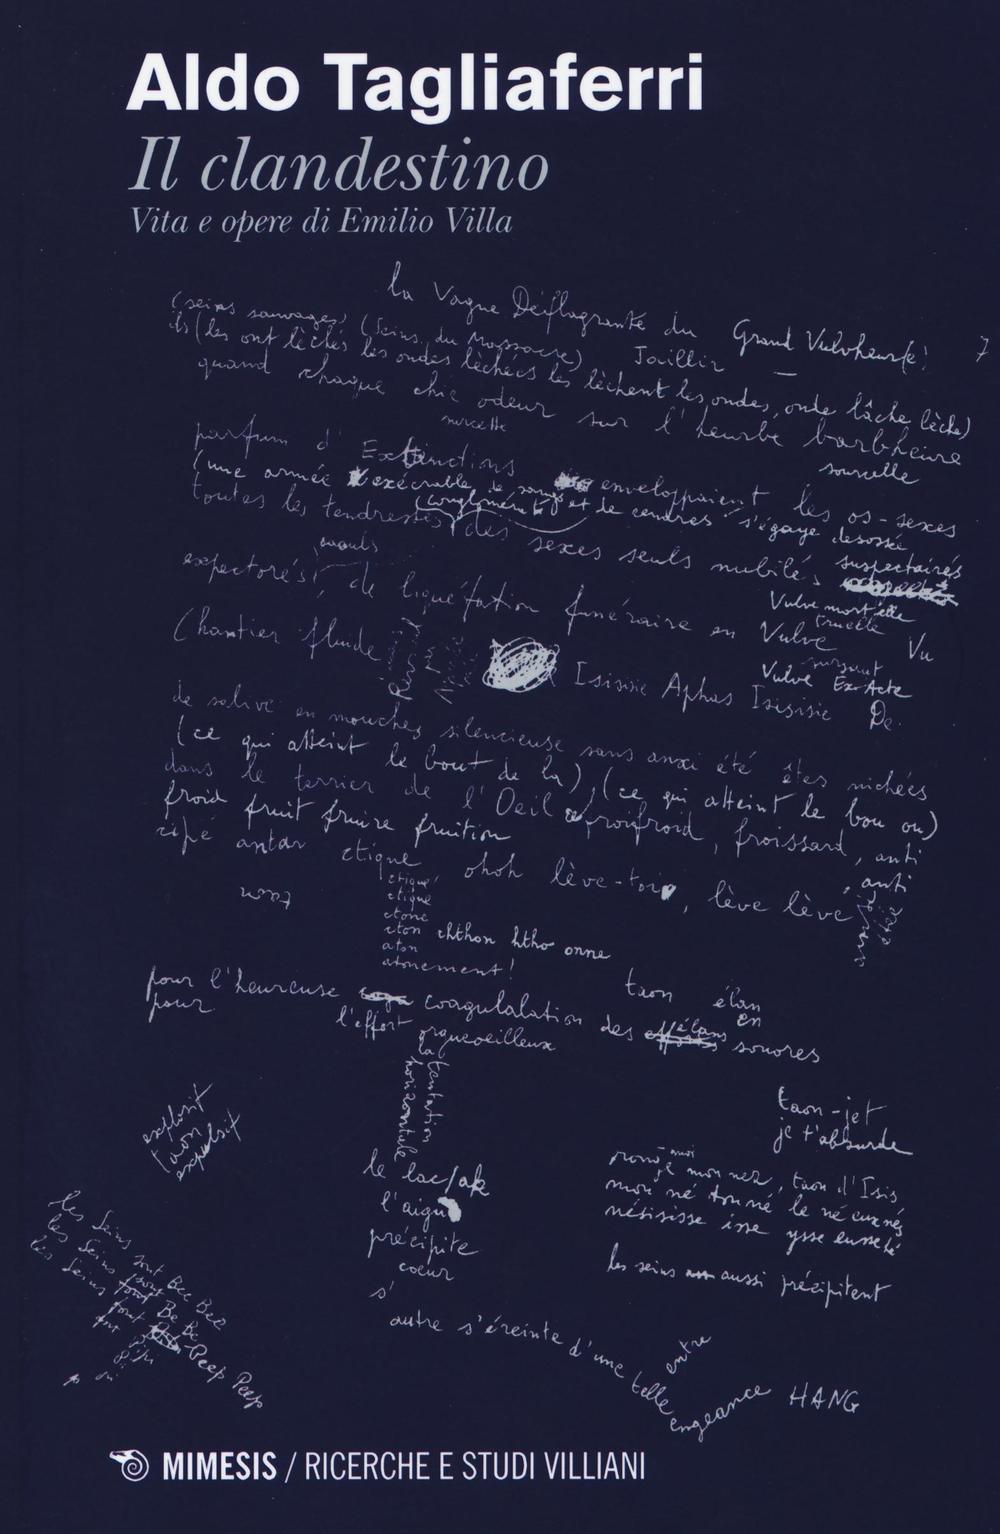 Aldo Tagliaferri
Il clandestino
Vita e opere di Emilio Villa
la Vague Déflagrante du Grand Vulvheur(e) 7
(seins sauvages) (seins du Massacre) Jaillir
ils (les ont lêchés les ondes lêchées les lêchent les ondes, onde lâche lèche)
quand chaque chic odeur sur l'heurbe barbheure
parfum d'Extinctions enveloppaient les os-sexes
(une armée exécrable de et de cendres s'égaye désossée
toutes les tendresses des sexes seuls nubilés suspectairés
expectorés, de liquéfation funéraire en Vulve Vu
Vulve mortelle
truelle
Chantier fluide Isisisie Aphas Isisisie De
Vulve sursaut Ex-Acte
de salive en mouches silencieuse sans anxi été êtes nichées
(ce qui atteint le bout de la) (ce qui atteint le bou ou)
dans le terrier de l'Oeil froufroid, froissard, anti
froid fruit fruire fruition , anti
antar etique ohoh lève-toi, lève lève
etique
etique
etone
eton chthon htho onne
aton
atonement!
taon
pour l'heureuse coagulalation des élans sonores
pour
taon élan
en
l'effort orgueoeilleux
la tentation
horizontale
explosit
taon
expulsit
taon-jet
je t'absurde
le lac/ak
l'aigu
précipite
coeur
s'
mon nez, taon d'Isis
mon né tonné le né
nésisisse isse ysse
les seins aussi précipitent
les Seins sont Bee Bee
les Seins font Be Be
les Seins font Peep Peep
autre s'éreinte d'une telle
entre
engeance HANG
MIMESIS / RICERCHE E STUDI VILLIANI